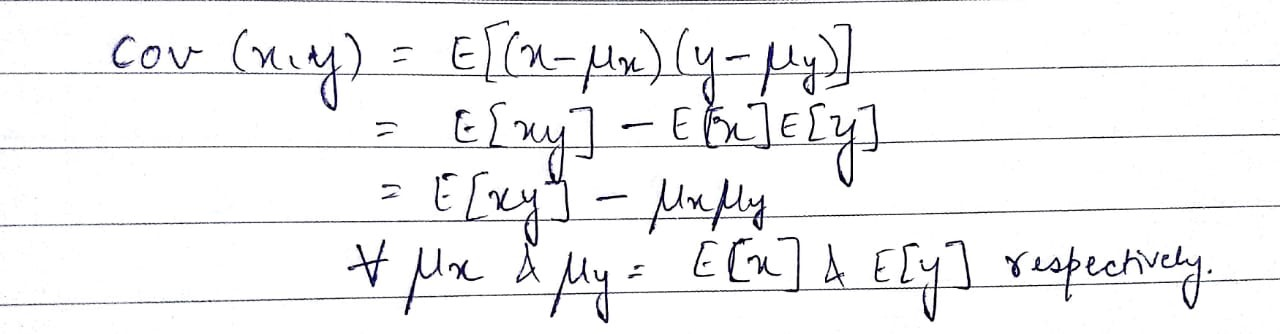 Cov (x,y) = E[(x-μx)(y-μy)]
= E[xy] - E[x]E[y]
= E[xy] - μxμy
∀ μx & μy = E[x] & E[y] respectively.